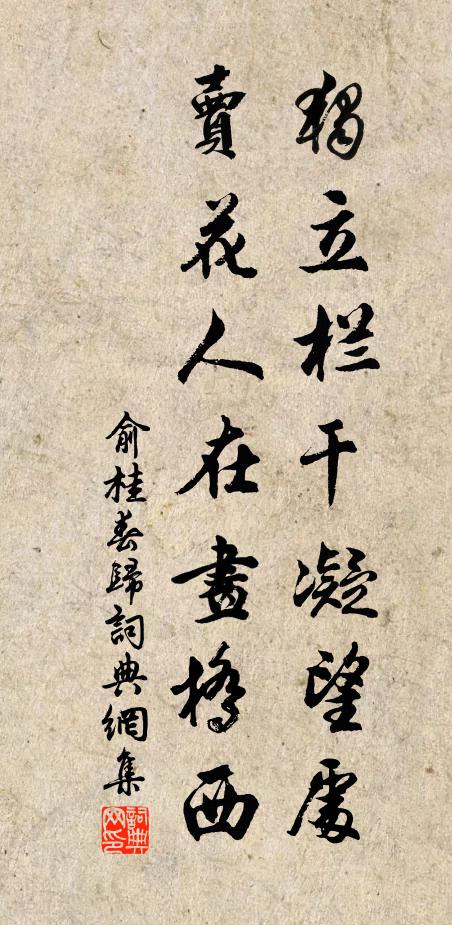 獨立栏干凝望處
賣花人在畫橋西
俞桂春歸詞典網集
詞典網印